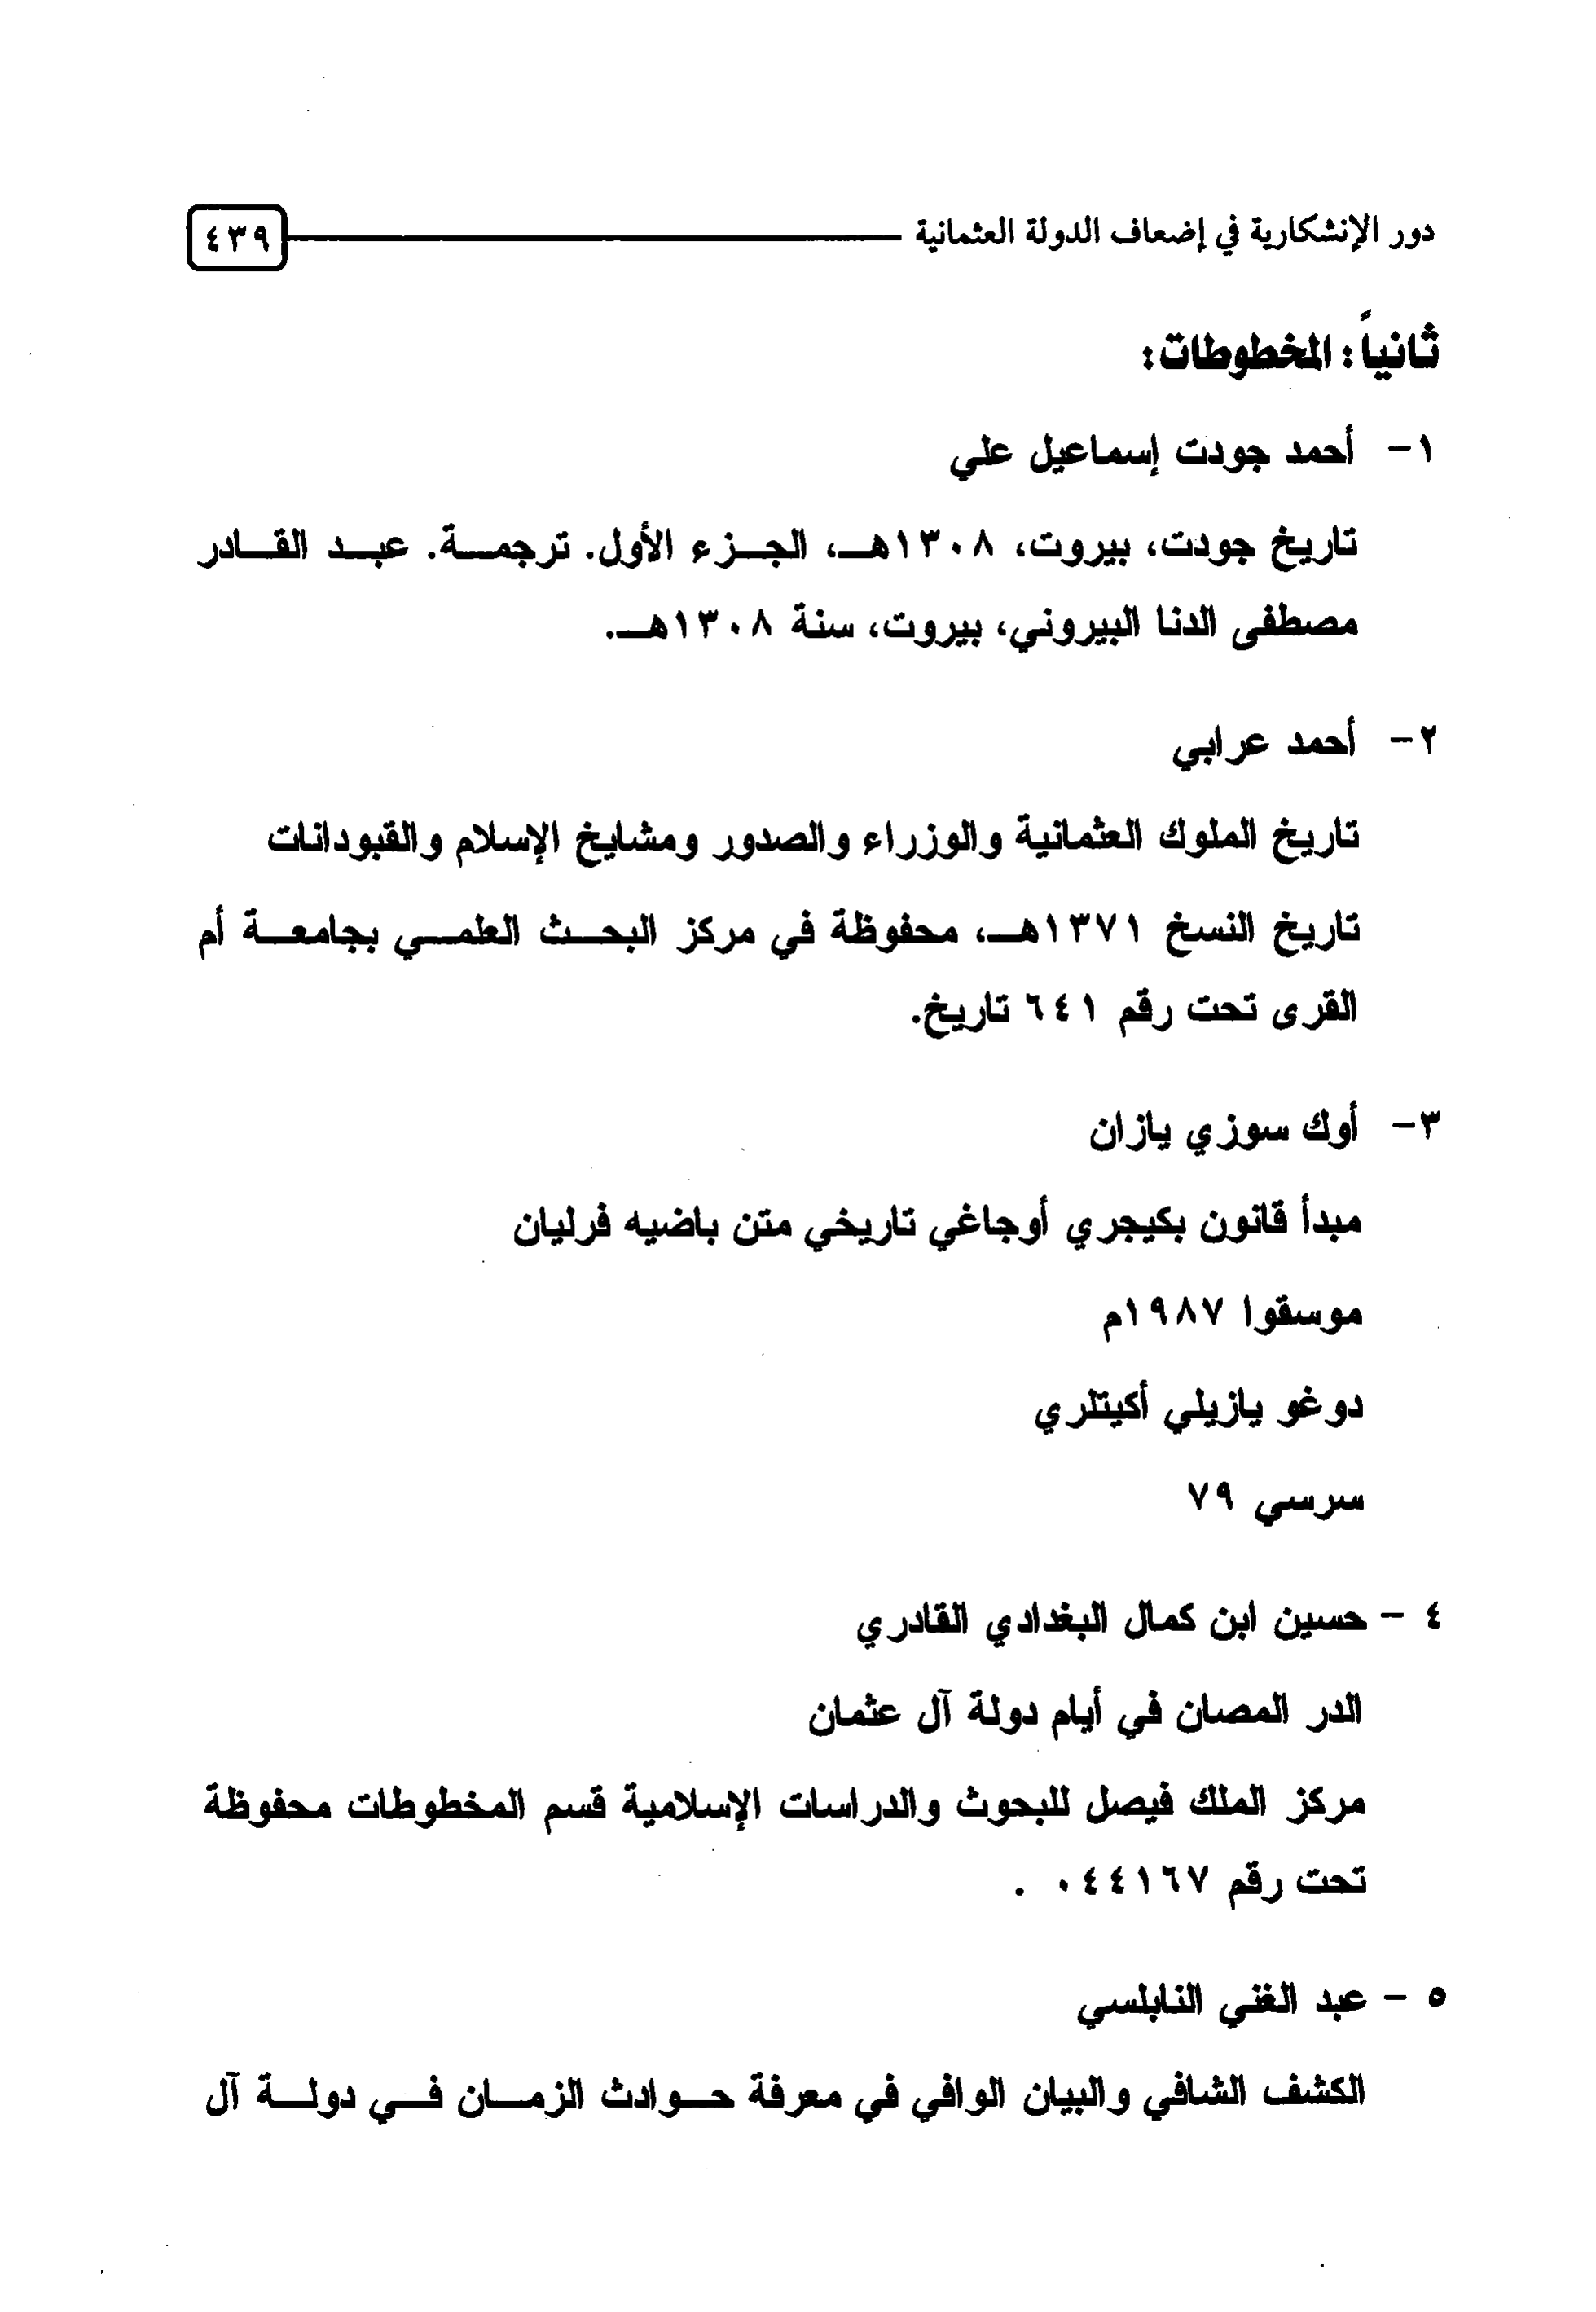 دور الإنشكارية في إضعاف الدولة العثمانية ٤٣٩
ثانياً: المخطوطات:
١- أحمد جودت إسماعيل علي
تاريخ جودت، بيروت، ١٣٠٨هـ، الجزء الأول. ترجمة. عبد القادر
مصطفى الدنا البيروني، بيروت، سنة ١٣٠٨هـ.
٢- أحمد عرابي
تاريخ الملوك العثمانية والوزراء والصدور ومشايخ الإسلام والقبودانات
تاريخ النسخ ١٣٧١هـ، محفوظة في مركز البحث العلمي بجامعة أم
القرى تحت رقم ٦٤١ تاريخ.
٣- أوك سوزي يازان
مبدأ قانون بكيجري أوجاغي تاريخي متن باضيه فرليان
موسقوا ١٩٨٧م
دوغو يازيلي أكيتلري
سرسي ٧٩
٤ - حسين ابن كمال البغدادي القادري
الدر المصان في أيام دولة آل عثمان
مركز الملك فيصل للبحوث والدراسات الإسلامية قسم المخطوطات محفوظة
تحت رقم ٠٤٤١٦٧ .
٥ - عبد الغني النابلسي
الكشف الشافي والبيان الوافي في معرفة حوادث الزمان في دولة آل